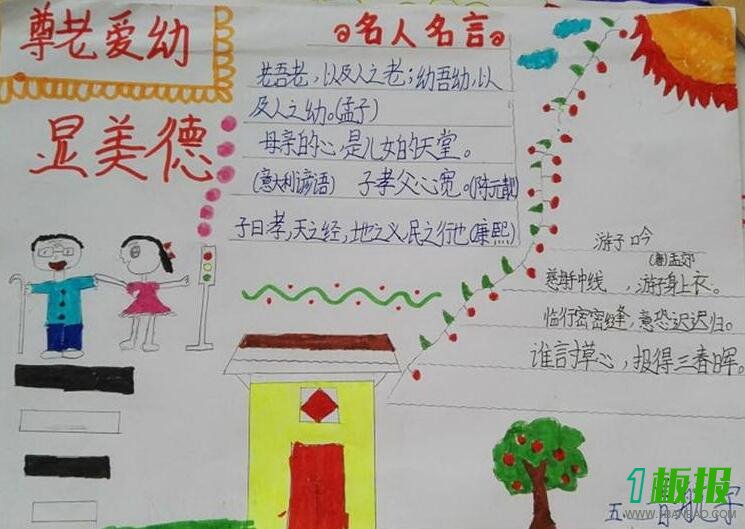 尊老爱幼
显美德
名人名言
老吾老，以及人之老；幼吾幼，以
及人之幼。(孟子)
母亲的心是儿女的天堂。
(意大利谚语) 子孝父心宽。(陈元靓)
子曰孝，天之经，地之义，民之行也(康熙)
游子吟
(唐)孟郊
慈母手中线，游子身上衣。
临行密密缝，意恐迟迟归。
谁言寸草心，报得三春晖。
五
1板报
WWW.1BANBAO.COM